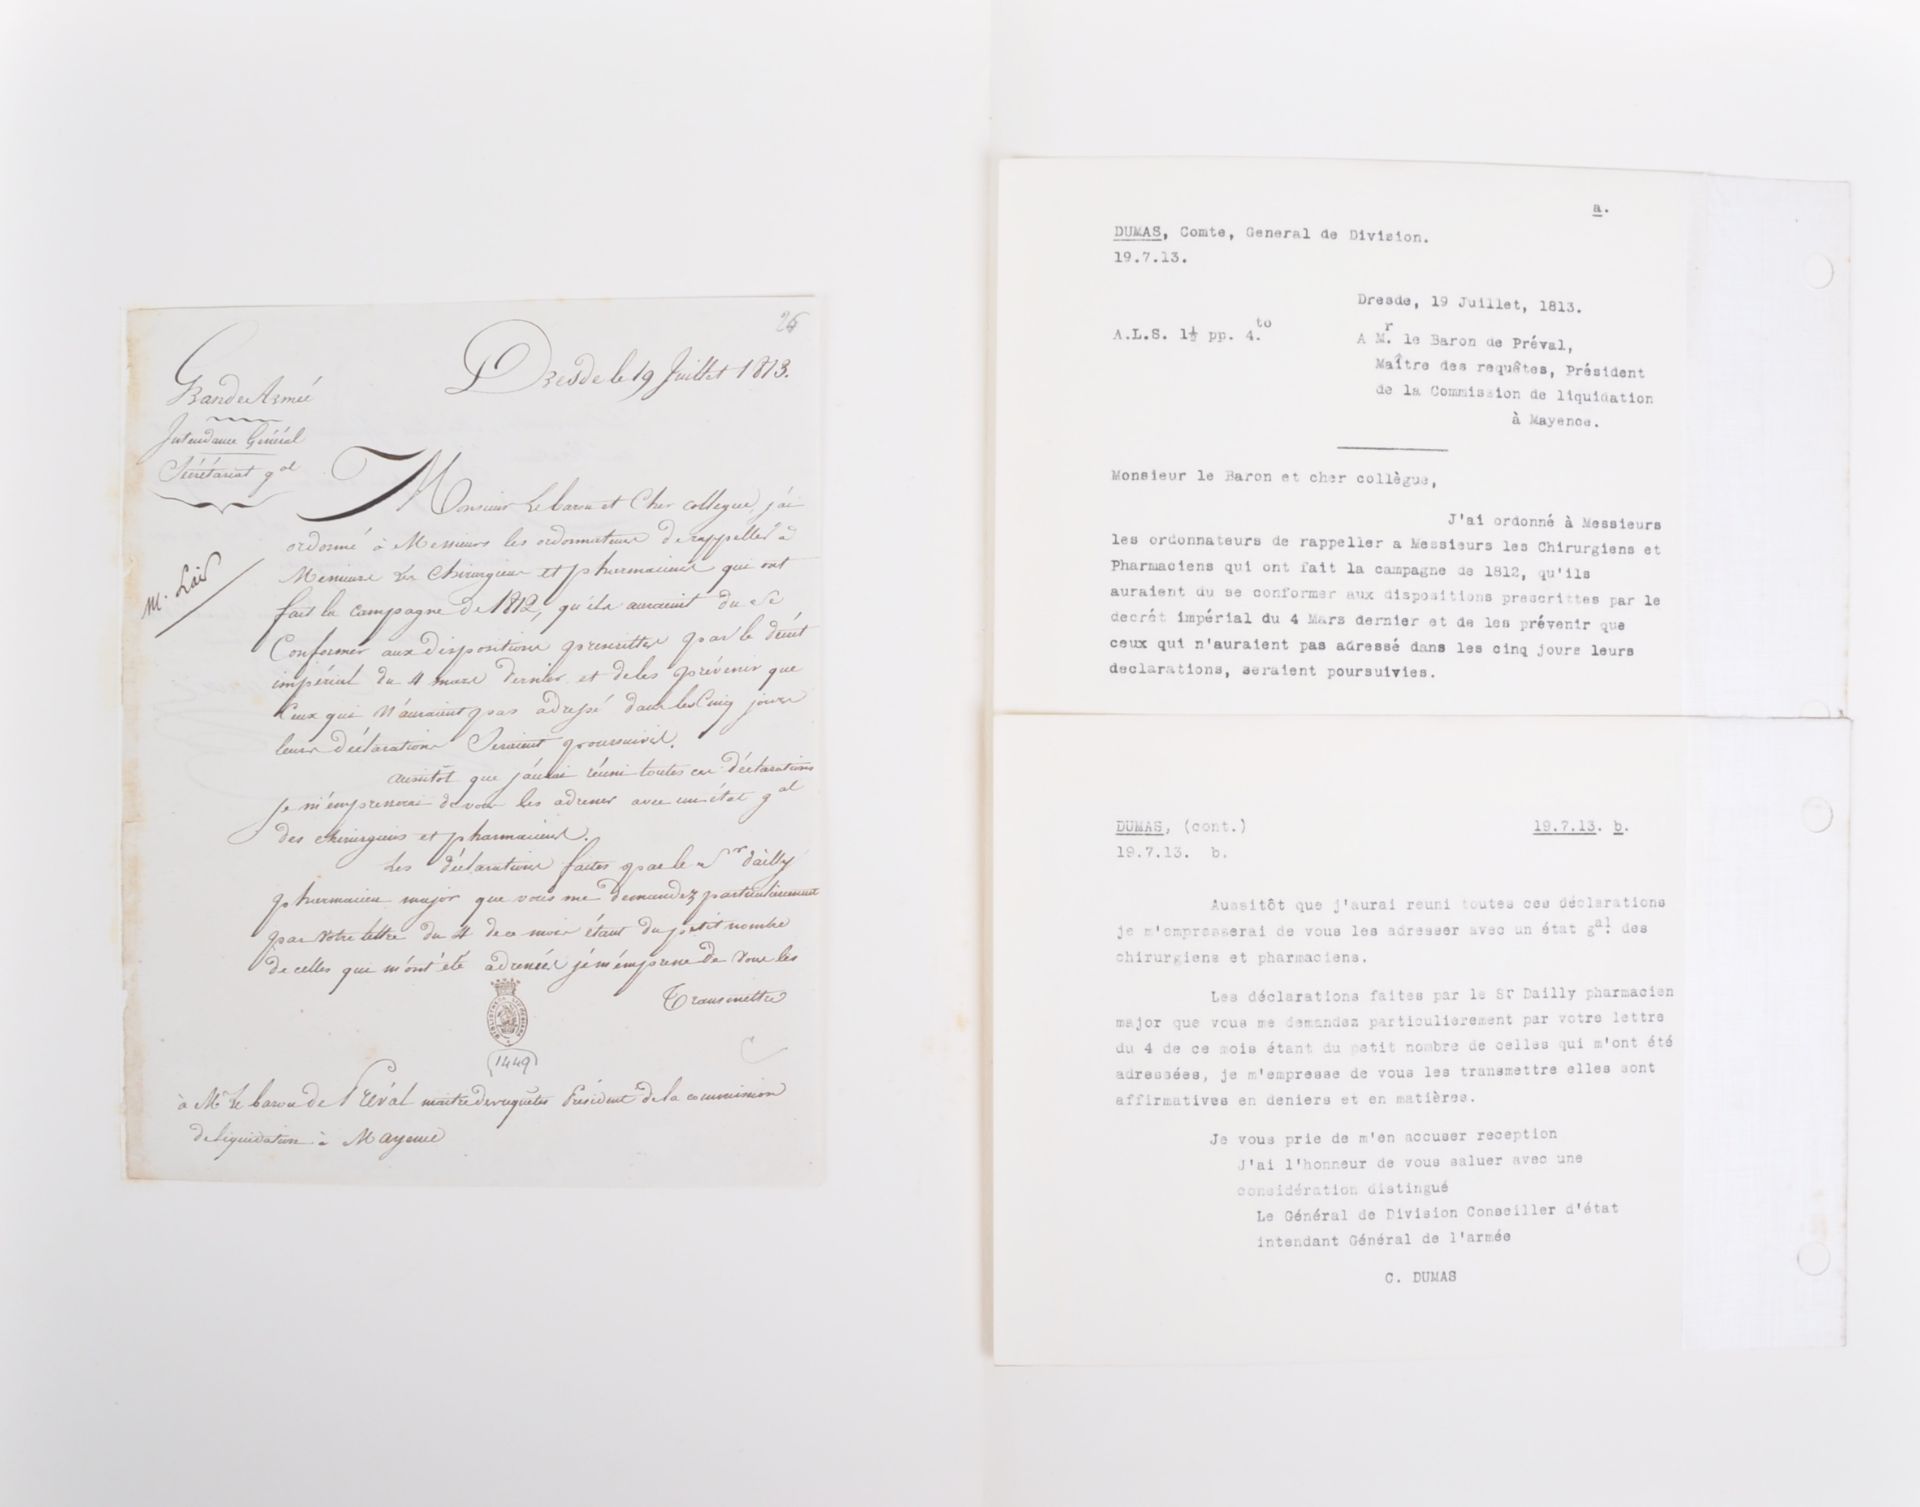 26
Dresde le 19 Juillet 1813.
Grande Armée
Intendance Général
Sécrétariat gal
M. Lair
Monsieur Le baron et Cher collegue, j'ai
ordonné à Messieurs les ordonnateurs de rappeller à
Messieurs les chirurgiens et pharmaciens qui ont
fait la campagne de 1812, qu'ils auraient du se
Conformer aux dispositions prescrittes par le décret
impérial du 4 mars dernier et de les prévenir que
Ceux qui n'auraient pas adressé dans les Cinq jours
leurs déclarations Seraient poursuivis.
aussitôt que j'aurai réuni toutes ces déclarations
je m'empresserai de vous les adresser avec un état gal
des chirurgiens et pharmaciens.
Les déclarations faites par le Sr dailly
pharmacien major que vous me demandez particulierement
par votre lettre du 4 de ce mois étant du petit nombre
de celles qui m'ont été adressées je m'empresse de vous les
Transmettre
1449
à Mr Le baron de Préval maitre des requêtes Président de la commission
de liquidation à Mayence
a.
DUMAS, Comte, General de Division.
19.7.13.
Dresde, 19 Juillet, 1813.
A.L.S. 1½ pp. 4.to
A Mr. le Baron de Préval,
Maître des requêtes, Président
de la Commission de liquidation
à Mayence.
Monsieur le Baron et cher collègue,
J'ai ordonné à Messieurs
les ordonnateurs de rappeller a Messieurs les Chirurgiens et
Pharmaciens qui ont fait la campagne de 1812, qu'ils
auraient du se conformer aux dispositions prescrittes par le
decrét impérial du 4 Mars dernier et de les prévenir que
ceux qui n'auraient pas adressé dans les cinq jours leurs
declarations, seraient poursuivies.
DUMAS, (cont.)
19.7.13. b.
19.7.13. b.
Aussitôt que j'aurai reuni toutes ces déclarations
je m'empresserai de vous les adresser avec un état gal. des
chirurgiens et pharmaciens.
Les déclarations faites par le Sr Dailly pharmacien
major que vous me demandez particulierement par votre lettre
du 4 de ce mois étant du petit nombre de celles qui m'ont été
adressées, je m'empresse de vous les transmettre elles sont
affirmatives en deniers et en matières.
Je vous prie de m'en accuser reception
J'ai l'honneur de vous saluer avec une
considération distingué
Le Général de Division Conseiller d'état
intendant Général de l'armée
C. DUMAS